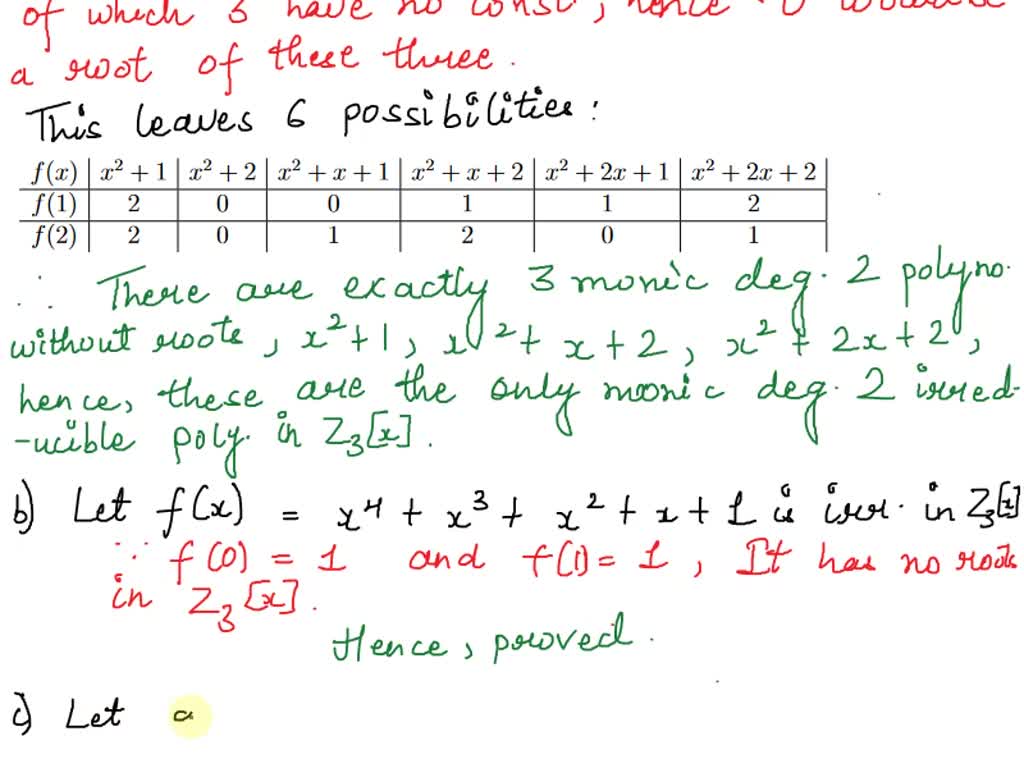 of which 3 have no const, hence 0 would be
a root of these three.
This leaves 6 possibilities:
f(x) | x² + 1 | x² + 2 | x² + x + 1 | x² + x + 2 | x² + 2x + 1 | x² + 2x + 2
f(1) | 2 | 0 | 0 | 1 | 1 | 2
f(2) | 2 | 0 | 1 | 2 | 0 | 1
∴ There are exactly 3 monic deg. 2 polyno.
without roots, x²+1, x²+x+2, x²+2x+2,
hence, these are the only monic deg. 2 irred-
-ucible poly. in Z₃[x].
b) Let f(x) = x⁴ + x³ + x² + x + 1 is irr. in Z₃[x]
∵ f(0) = 1 and f(1) = 1, It has no roots
in Z₃[x].
Hence, proved.
c) Let a